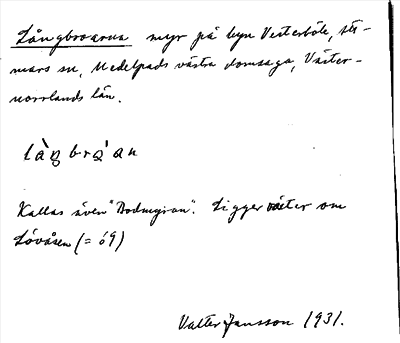 Långbroarna myr på byn Vesterböle, Att-
mars sn, Medelpads västra domsaga, Väster-
norrlands län.
làŋbrɷ'an
Kallas även "Bodmyran". Ligger väster om
Lövåsen (= 69)
Valter Jansson 1931.